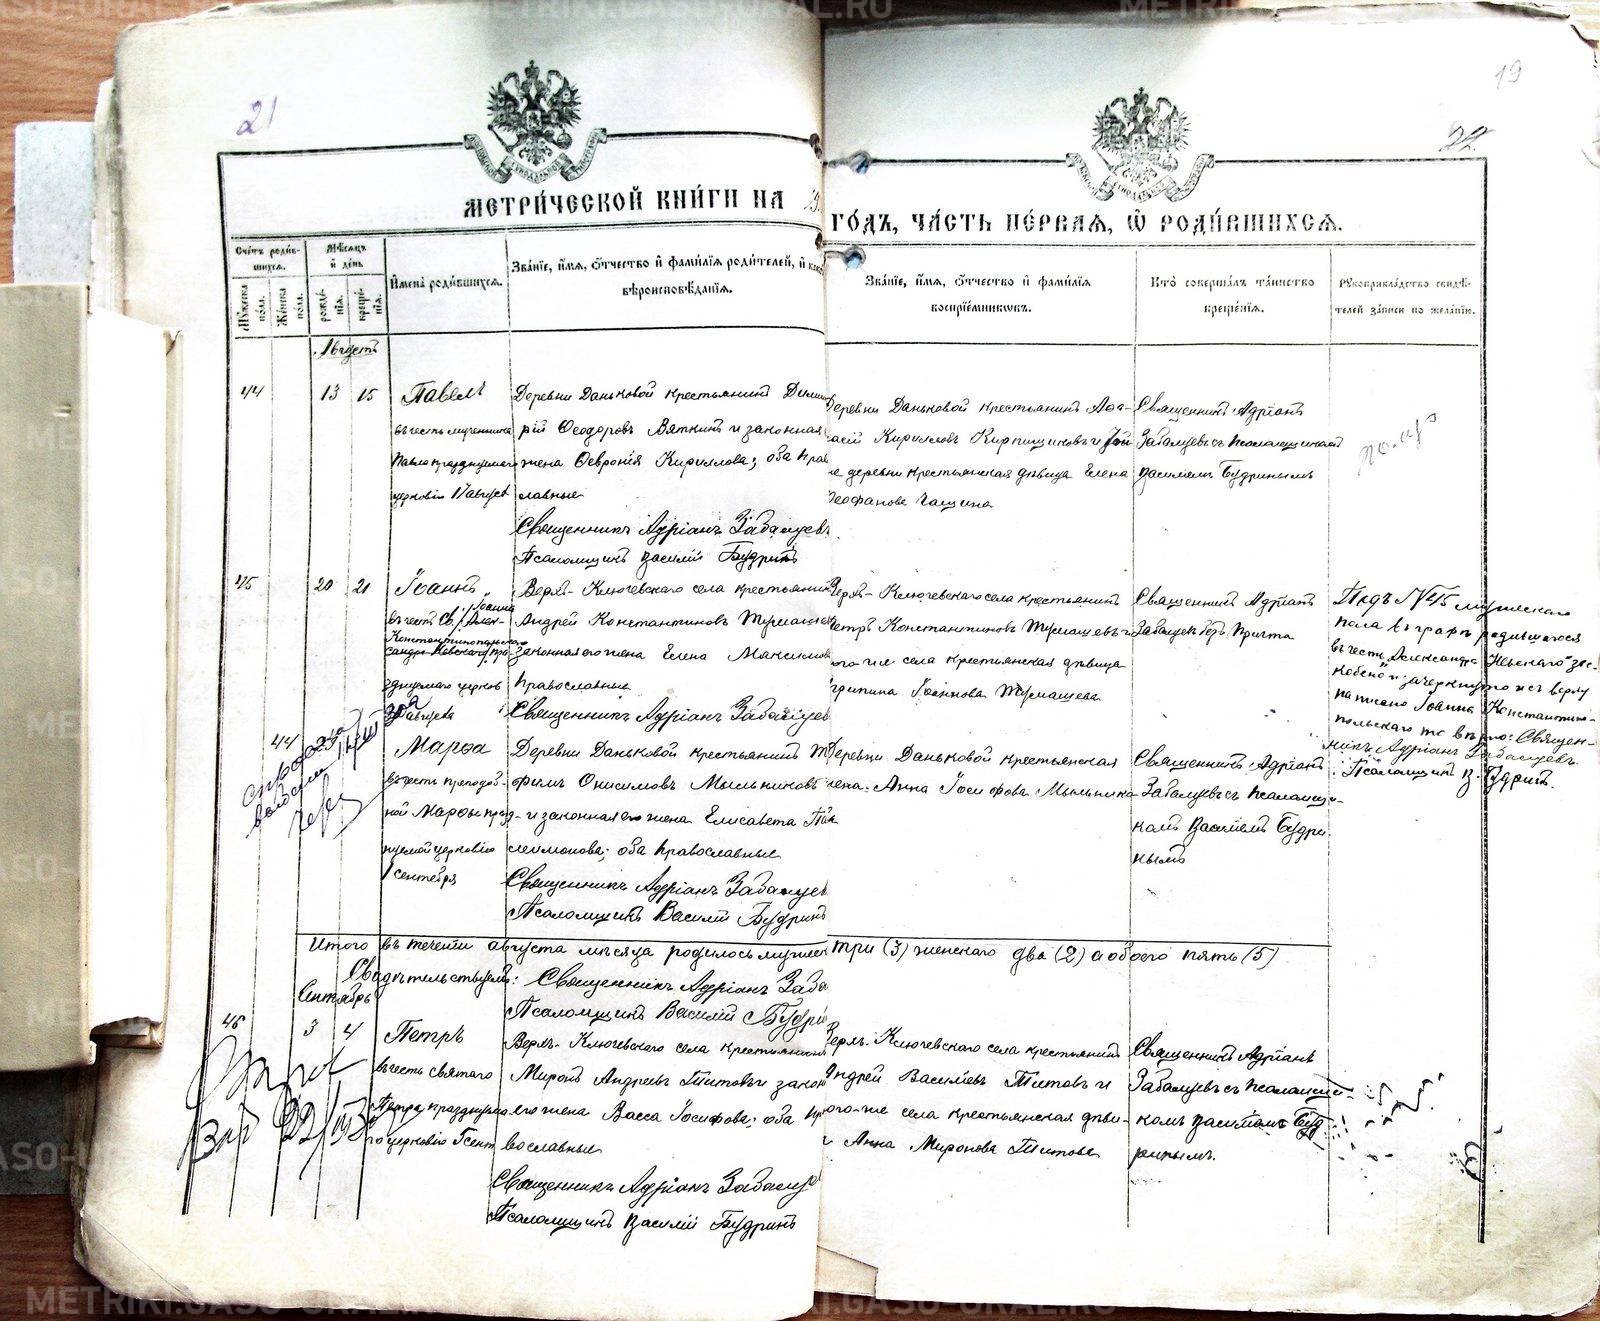 21
19
22
МЕТРИ́ЧЕСКОЙ КНИ́ГИ НА
ГО́ДЪ, ЧА́СТЬ ПЕ́РВАЯ, Ѿ РОДИ́ВШИХСЯ.
Сче́тъ роди́вшихся.
Му́жеска по́ла.
Же́нска по́ла.
Мѣ́сяцъ и́ де́нь
рожде́нїя.
креще́нїя.
И҆мена̀ роди́вшихся.
Зва́нїе, и҆́мя, ѻ҆́тчество и҆ фами́лїя роди́телей, и҆
вѣроисповѣ́данїя.
Зва́нїе, и҆́мя, ѻ҆́тчество и҆ фами́лїя
воспрїе́мниковъ.
Кто̀ соверша́лъ та́инство
креще́нїя.
Рꙋкоприкла́дство свидѣ́телей за́писи по жела́нїю.
Августъ
44 13 15 Павелъ
въ честь мученика
Павла празднуемаго
церковію 17 августа
Деревни Даньковой крестьянинъ Дими
рій Ѳеодоровъ Вяткинъ и законная
жена Ѳевронія Кириллова; оба пра
славные
Священникъ Адріанъ Забалуевъ
Псаломщикъ Василій Будринъ
Деревни Даньковой крестьянинъ Аѳа-
насій Кирилловъ Кирпищиковъ и той
же деревни крестьянская дѣвица Елена
Ѳеофанова Чащина
Священникъ Адріанъ
Забалуевъ съ псаломщикомъ
Василіемъ Будринымъ
45 20 21 Іоаннъ
въ честь Св. Іоанна
Константинопольскаго
празднуемаго церков
августа
Верхъ-Ключевскаго села крестьянинъ
Андрей Константиновъ Тумашевъ
законная его жена Елена Максимова
православные
Священникъ Адріанъ Забалуев
Верхъ-Ключевскаго села крестьянинъ
Петръ Константиновъ Тумашевъ и
того-же села крестьянская дѣвица
Агрипина Іоаннова Тумашева
Священникъ Адріанъ
Забалуевъ безъ причта
Подъ №45 мужескаго
пола въ графѣ родившагося
въ честь „Александра Невскаго" зас-
коблено и зачеркнуто и съ верху
написано Іоанна Константино-
польскаго то вѣрно: Священ-
никъ Адріанъ Забалуевъ.
Псаломщикъ В. Будринъ.
44
Марѳа
въ честь преподоб-
ной Марѳы празд-
нуемой церковію
1 сентября
Деревни Даньковой крестьянинъ Т
фимъ Онисимовъ Мыльниковъ
и законная его жена Елисавета Пан
телеимонова; оба православные
Священникъ Адріанъ Забалуев
Псаломщикъ Василій Будринъ
Деревни Даньковой крестьянская
жена Анна Іосифова Мыльнико
Священникъ Адріанъ
Забалуевъ съ псаломщи-
комъ Василіемъ Будри-
нымъ
Итого въ теченіи августа мѣсяца родилось мужес три (3) женскаго два (2) а обоего пять (5)
Свидѣтельствуемъ: Священникъ Адріанъ Заба
Псаломщикъ Василій Будри
Сентябрь
46 3 4 Петръ
въ честь святаго
Петра, празднуема
го церковію сент
Верхъ-Ключевскаго села крестьянинъ
Миронъ Андреевъ Титовъ и закон
его жена Васса Іосифова; оба пр
вославные
Священникъ Адріанъ Забалуе
Псаломщикъ Василій Будринъ
Верхъ-Ключевскаго села крестьянинъ
Андрей Васильевъ Титовъ и
того-же села крестьянская дѣви-
Анна Миронова Титова
Священникъ Адріанъ
Забалуевъ съ псаломщи-
комъ Василіемъ Буд-
ринымъ.
METRIKI.GASO-URAL.RU